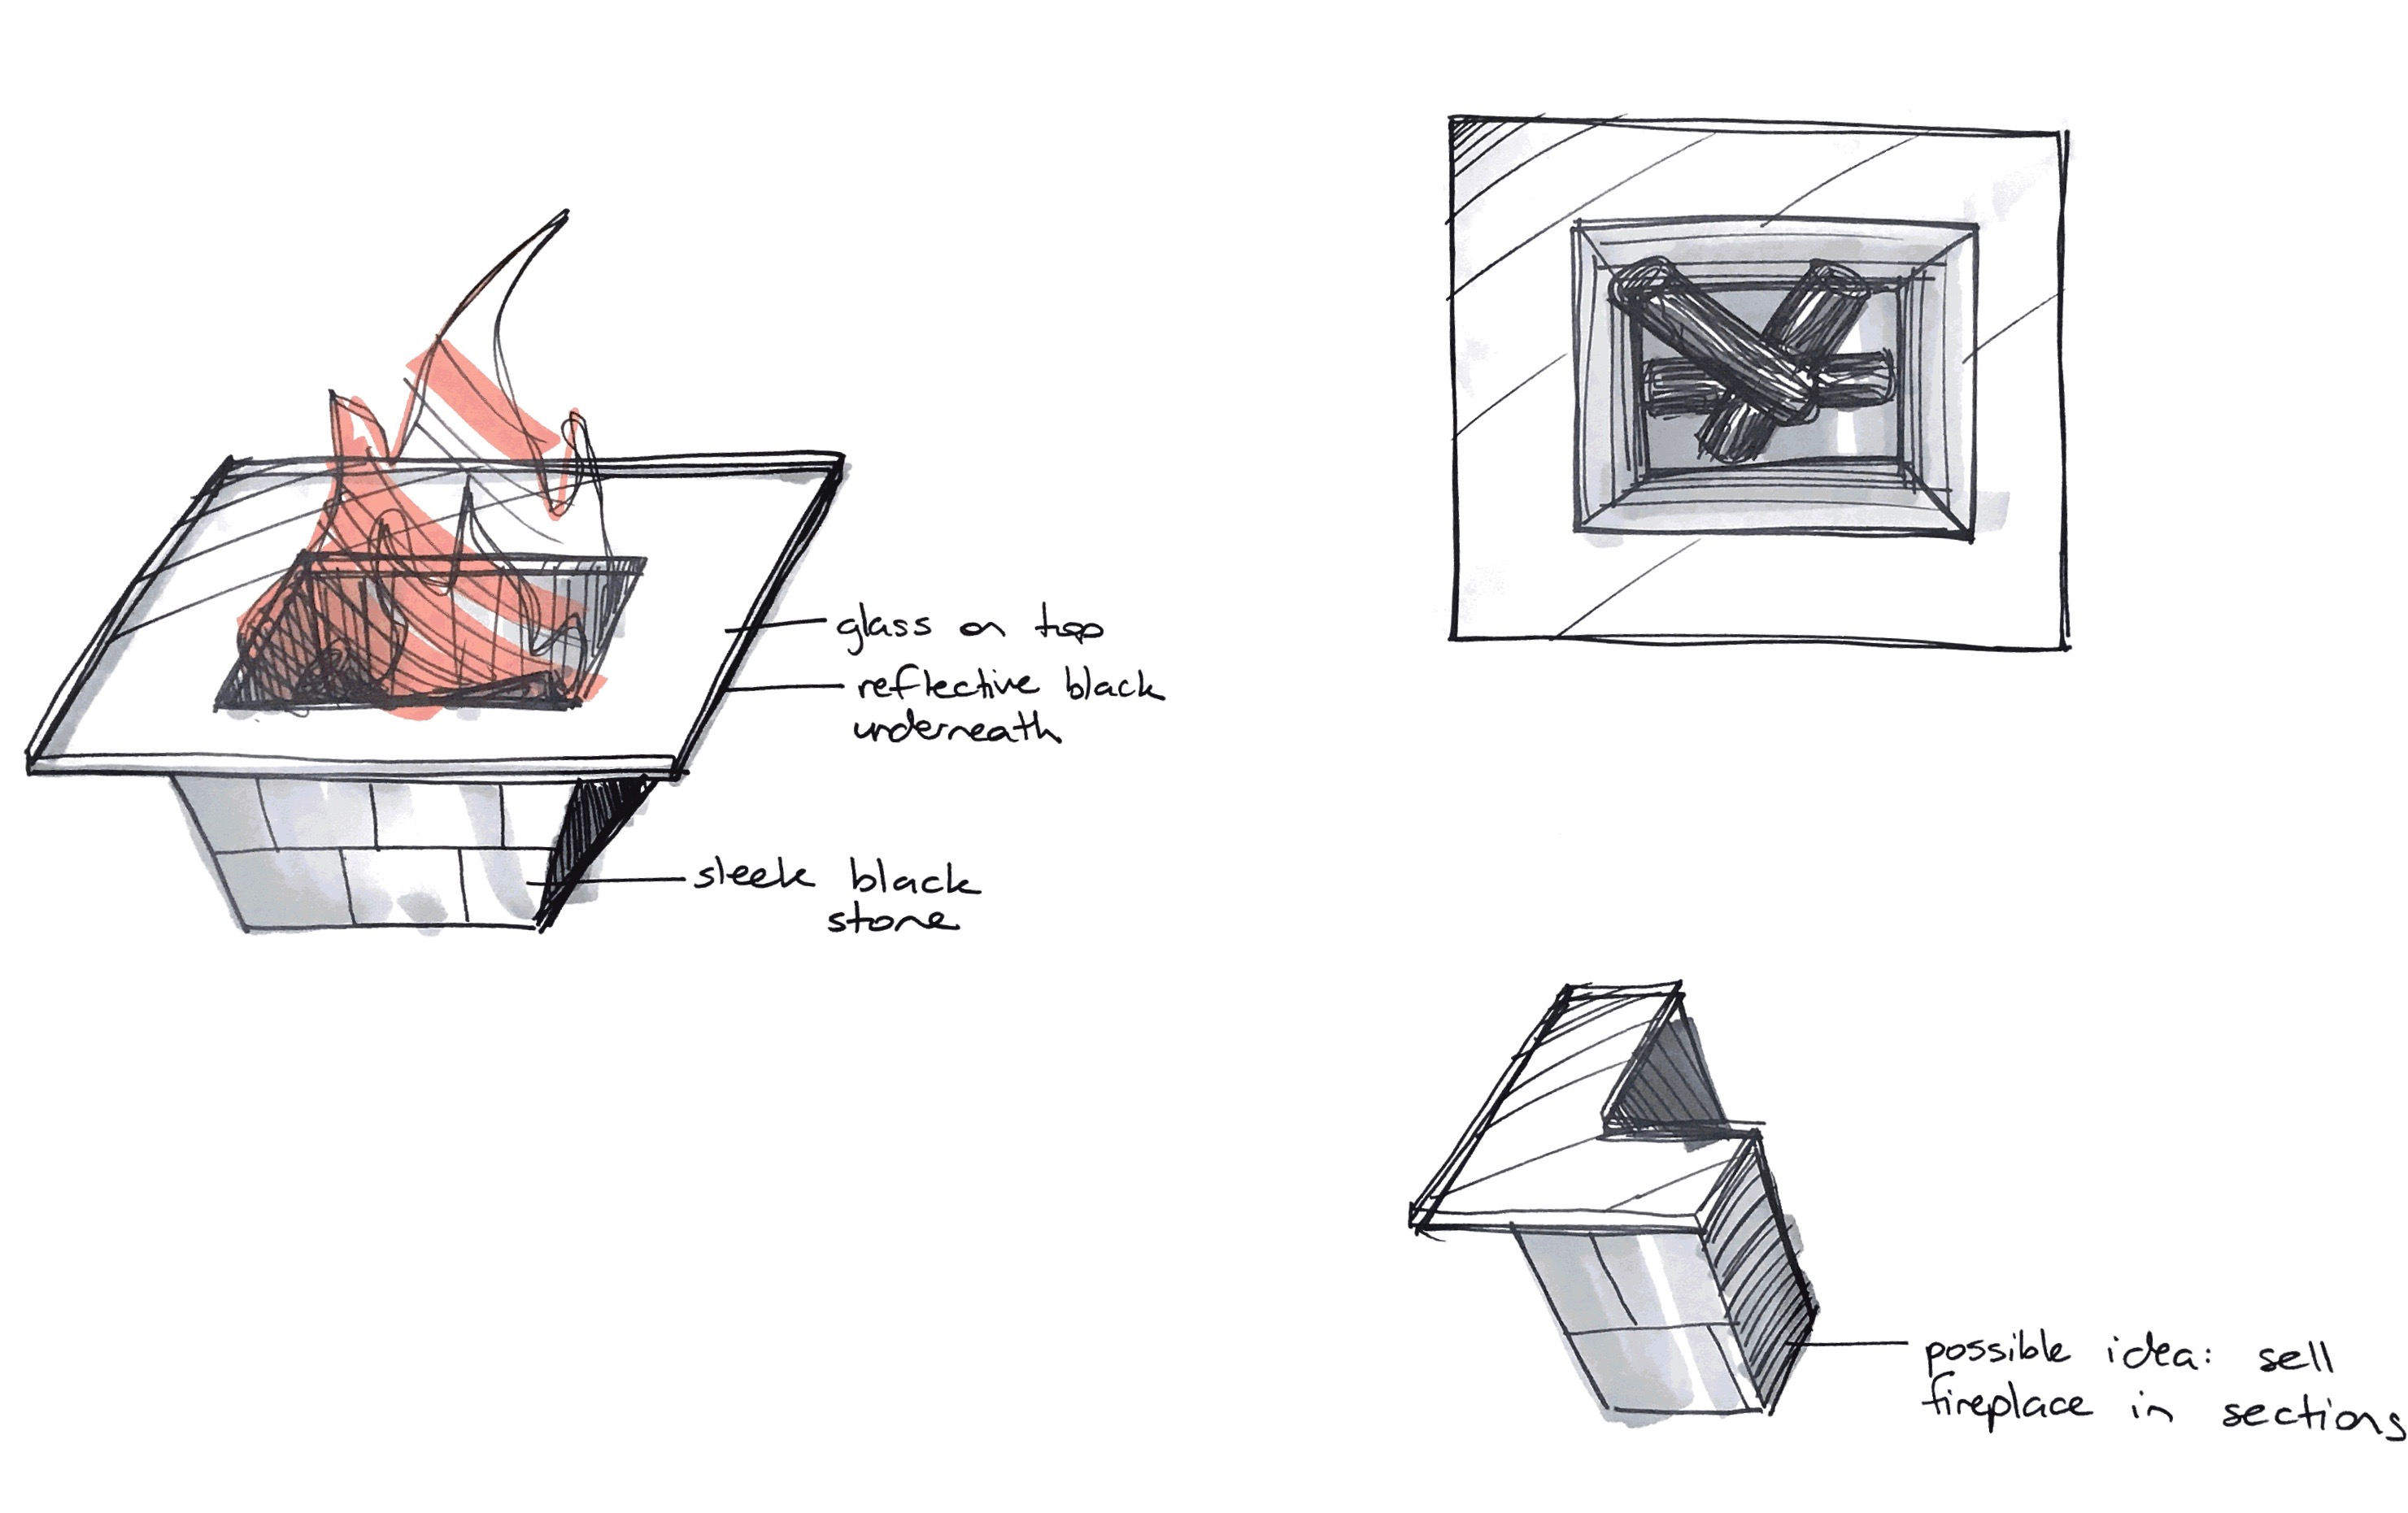 glass on top
reflective black
underneath
sleek black
stone
possible idea: sell
fireplace in sections